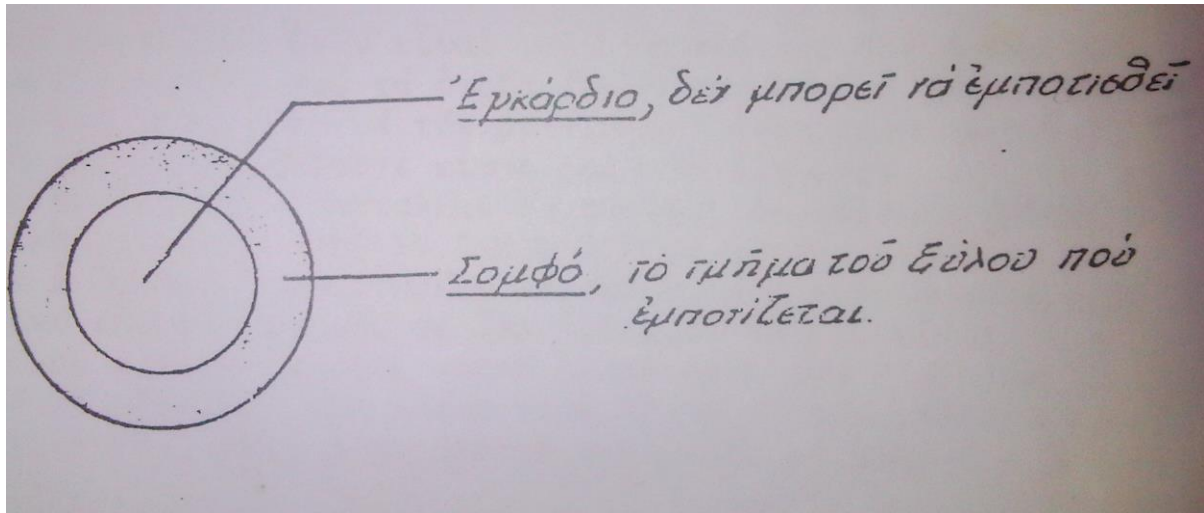 Ἐγκάρδιο, δέν μπορεῖ νά ἐμποτισθεῖ
Σομφό, τό τμῆμα τοῦ ξύλου πού
ἐμποτίζεται.